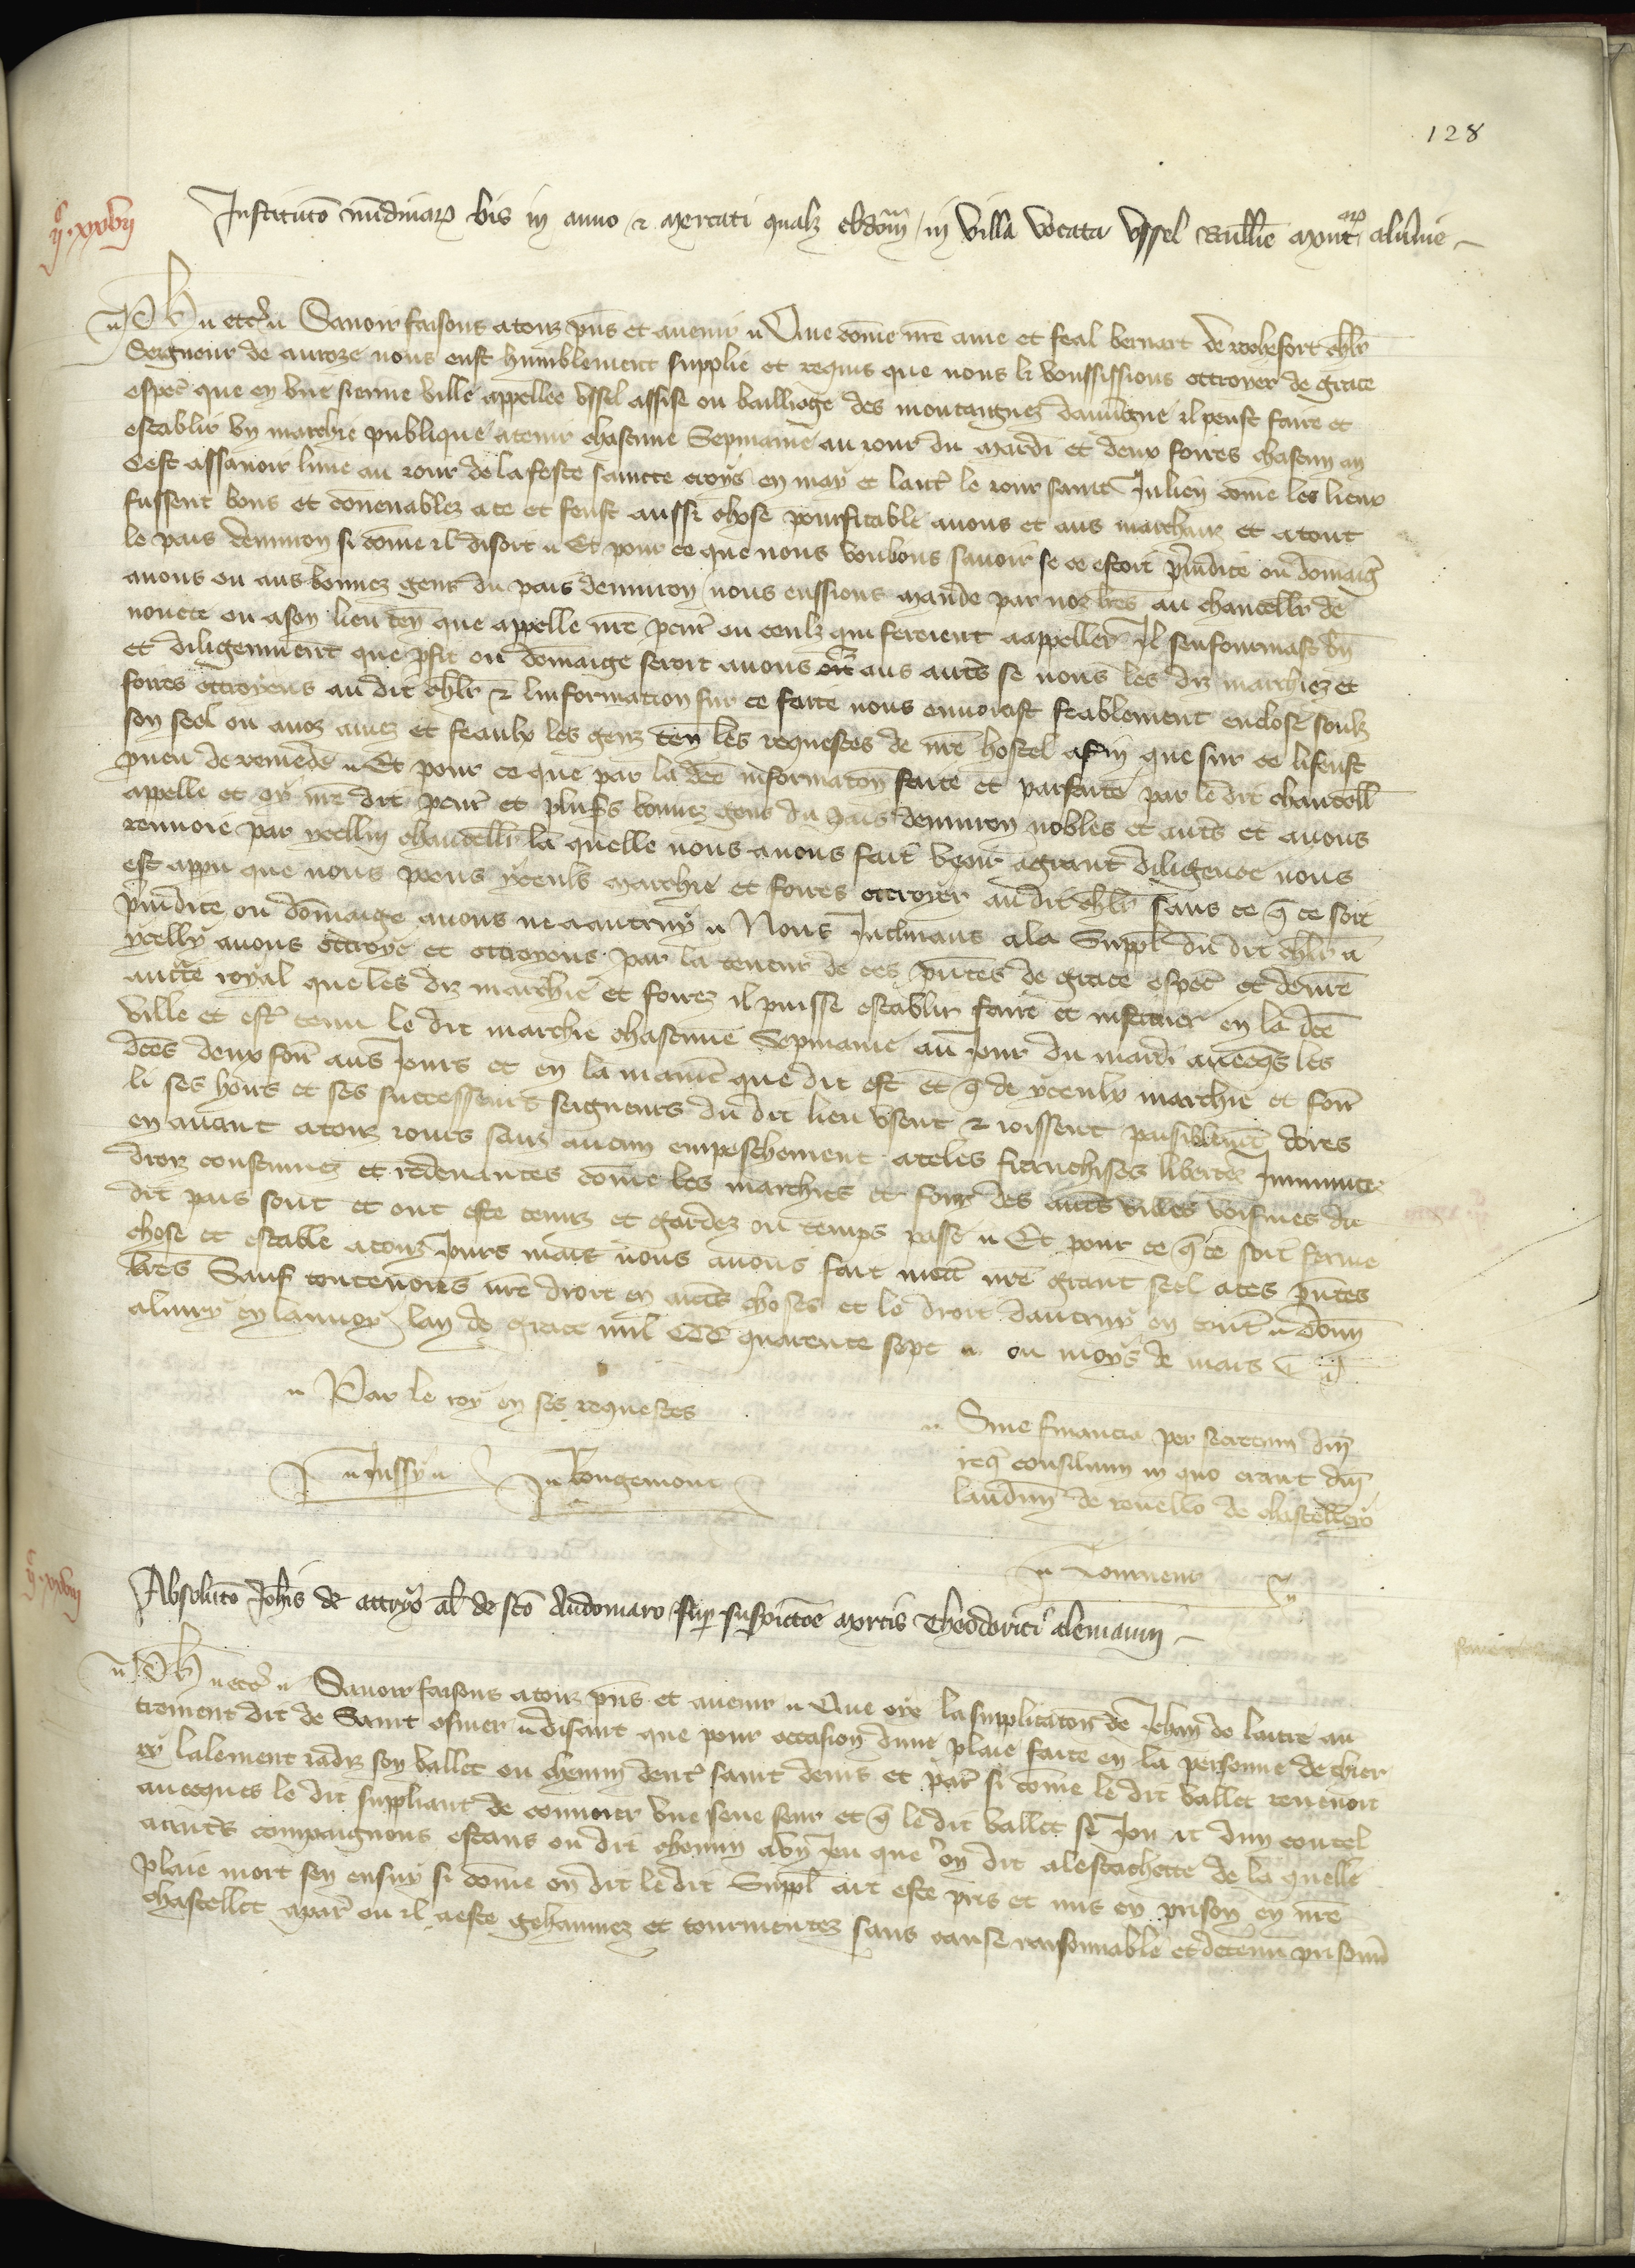 128
Institutio nundinarum bis in anno et mercati qualibet ebdomada in villa vocata Ussel baillivie montanarum alvernie
ijc xxvij
Ph etc Savoir faisons a touz presens et avenir Que comme nostre ame et feal bernart de rochefort chevalier
Seigneur de auroze nous eust humblement supplie et requis que nous li voussissions ottroyer de grace
especial que en une sienne ville appellee Ussel assise ou bailliage des montaignes dauvergne il peust faire et
establir un marchie publique a tenir chascune sepmaine au jour du mardi et deux foires chascun an
Cest assavoir lune au jour de la feste saincte croys en may et lautre le jour saint Julien comme les lieux
fussent bons et convenables a ce et feust aussi chose pourfitable a nous et aus marchans et a tout
le pais denviron si comme il disoit Et pour ce que nous voulions savoir se ce estoit prejudice ou domaige
a nous ou aus bonnes gens du pais denviron nous eussions mande par noz lettres au chancellier de
nonete ou a son lieu tenant que appelle nostre procureur ou ceulz qui feroient a appeller Il senfourmast bien
et diligemment que profit ou domaige seroit a nous et aus autres se nous les diz marchiez et
foires ottroyens au dit chevalier et linformation sur ce faite nous envoiast feablement enclose soulz
son seel ou a noz amez et feaulx les genz tenans les requestes de nostre hostel afin que sur ce li feust
pourveu de remede Et pour ce que par la dicte informacion faite et parfaite par le dit chancellier
appelle et oy nostre dit procureur et pluseurs bonnes gens du pais denviron nobles et autres et a nous
renvoie par ycelluy chancellier la quelle nous avons fait veoir a grant diligence nous
est apparu que nous poons yceuls marchie et foires ottroyer au dit chevalier sans ce que ce soit
prejudice ou domaige a nous ne a autruy Nous Inclinans a la supplication du dit chevalier a
ycelly avons ottroye et ottroyons par la teneur de ces presentes de grace especial et de nostre
auctorite royal que les diz marchie et foires il puisse establir faire et instituer en la dicte
ville et estre tenu le dit marchie chascune sepmaine au jour du mardi avecques les
dictes deux foires aus jours et en la maniere que dit est et que de yceulx marchie et foires
li ses hoirs et ses successeurs seigneurs du dit lieu usent et joissent paisiblement dores
en avant a touz jours sans aucun empeschement a teles franchises libertez Immunitez
droiz coustumes et redevances comme les marchies et foires des autres villes voisines du
dit pais sont et ont este tenuz et gardez ou temps passe Et pour ce que ce soit ferme
chose et estable a touz jours mais nous avons fait mettre nostre grant seel a ces presentes
lettres Sauf toutevoies nostre droit en autres choses et le droit dautruy en tout Donne
a livry en lannoy lan de grace mil CCC quarente sept ou moys de mars
Par le roy en ses requestes
Jussy Rougemont
Sine financia per secretum domini
regis consilium in quo erant domini
laudunensis de revello de chastellerio
Tourneur
ijc xxviij
Absolutio Johannis de attryo alias de sancto Audomaro super suspicione mortis Theodorici alemanni
Ph etc Savoir faisons a touz presens et avenir Que oye la supplicacion de Jehan de laitre au
trement dit de Saint osmer disant que pour occasion dune plaie faite en la personne de thier
ry lalement jadiz son vallet ou chemin dentre saint denis et paris si comme le dit vallet revenoit
avecques le dit suppliant de convoier une seue seur et que le dit vallet se joua dun coutel
a autres compaignons estans ou dit chemin a un jeu que on dit a lestachette de la quelle
plaie mort sen ensuy si comme on dit le dit suppliant ait este pris et mis en prison en nostre
chastellet a paris ou il a este gehannez et tourmentez sans cause raisonnable et detenu prisonnier